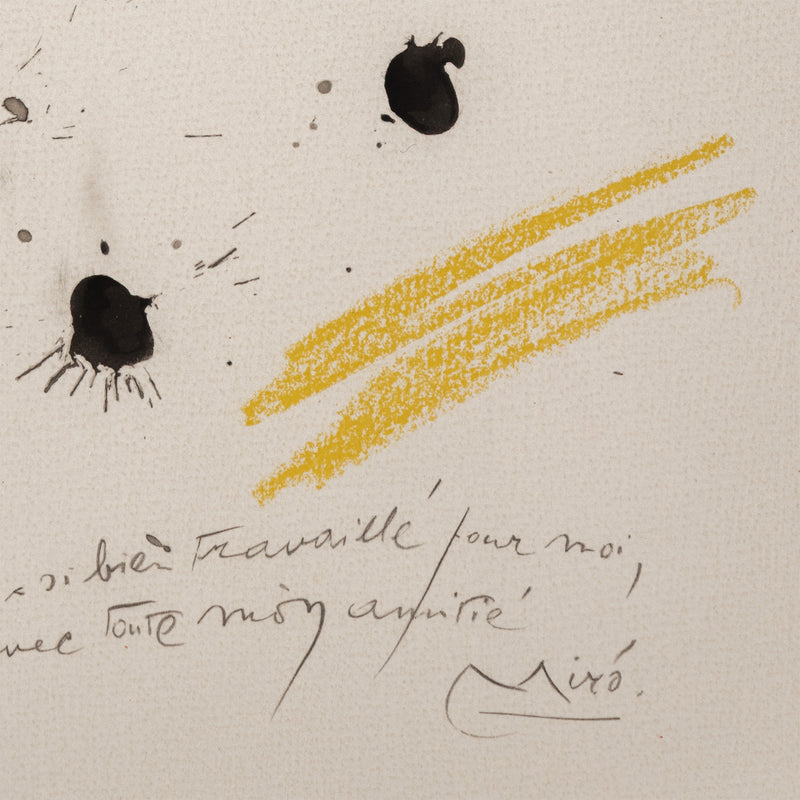 si bien travaillé pour moi,
avec toute mon amitié
Miró.